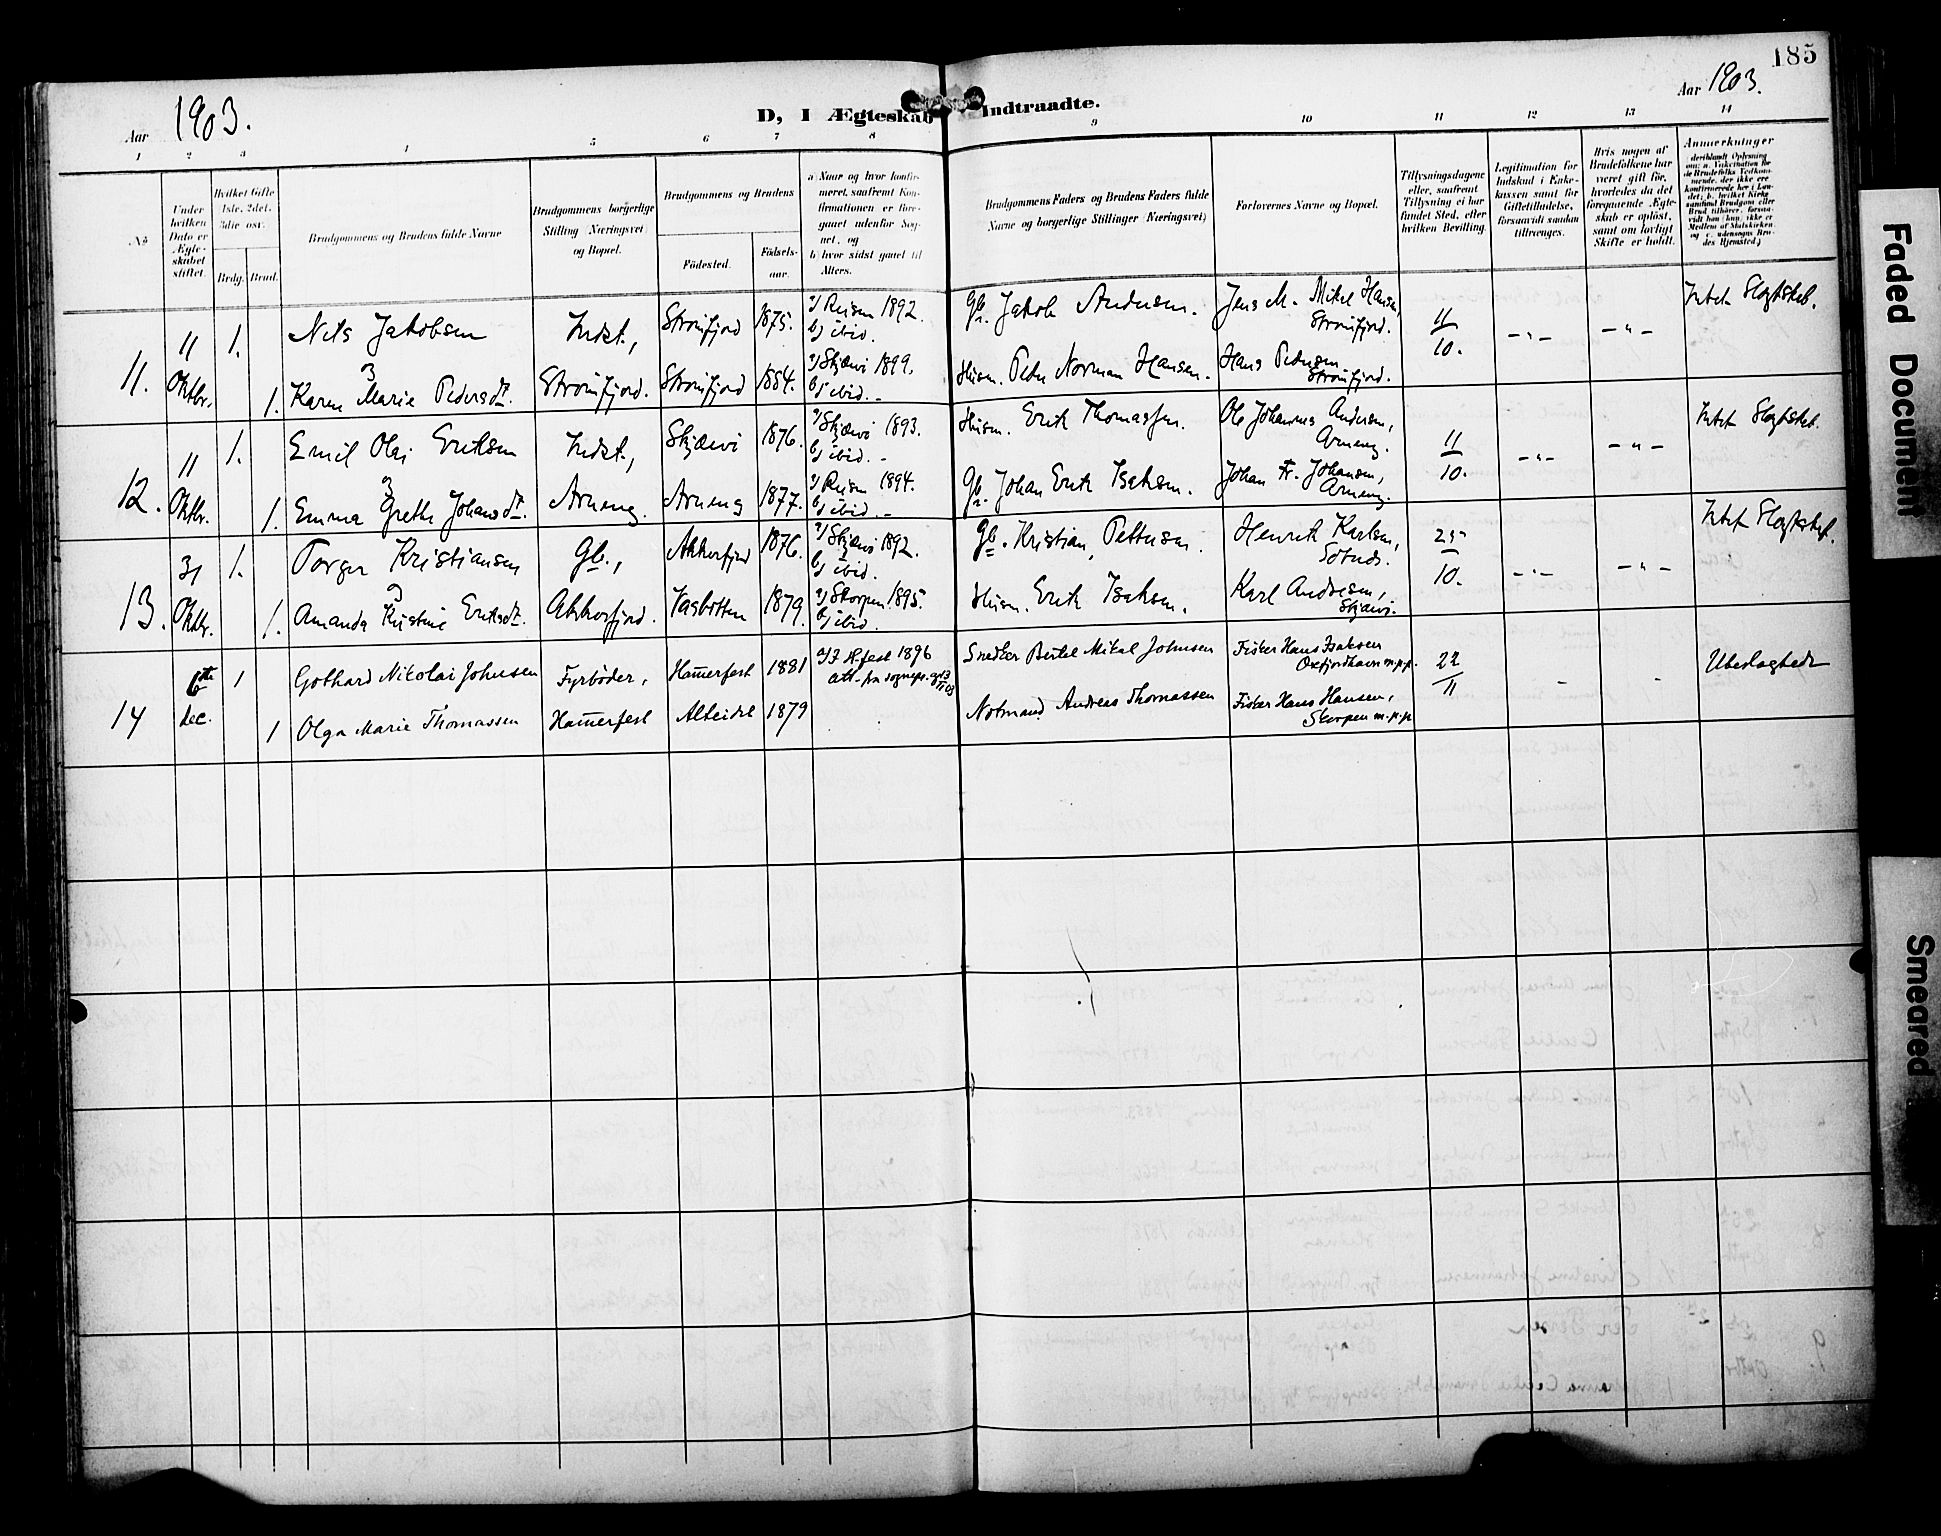 185
Aar 1903.
D, I Ægteskab Indtraadte.
Aar 1903.
1 2 3 4 5 6 7 8 9 10 11 12 13 14
No
Under hvilken Dato er Ægteskabet stiftet.
Hvilket Gifte 1ste, 2det, 3die osv.
Brdg. Brud.
Brudgommens og Brudens fulde Navne
Brudgommens borgerlige Stilling (Næringsvei) og Bopæl.
Brudgommens og Brudens
Födested.
Födsels-aar.
a) Naar og hvor konfirmeret, saafremt Konfirmationen er foregaaet udenfor Sognet, og
b) hvor sidst gaaet til Alters.
Brudgommens Faders og Brudens Faders fulde Navne og borgerlige Stillinger (Næringsvei)
Forlovernes Navne og Bopæl.
Tillysningsdagene eller, saafremt Tillysning ei har fundet Sted, efter hvilken Bevilling.
Legitimation for Indskud i Enkekassen samt for Giftetilladelse, forsaavidt saadan tiltrænges.
Hvis nogen af Brudefolkene har været gift för, hvorledes da det foregaaende Ægteskab er oplöst, samt om lovligt Skifte er holdt.
Anmerkninger
11. 11 Oktbr. 1. Nils Jakobsen Indst., Strømfjord 1875. a) Reisen 1892. b) ibid. Gb. Jakob Andersen. Jens M. Mikel Hansen, Strømfjord. 11/10. -"- -"- Intet Slægtskab.
og
1. Karen Marie Pedersdt. Strømfjord. Strømfjord 1884. a) Skjærvø 1899. b) ibid. Husm. Peder Norman Hansen. Hans Pedersen, Strømfjord.
12. 11 Oktbr. 1. Emil Olai Eriksen Indst., Skjærvø 1876. a) Skjærvø 1893. b) ibid. Husm. Erik Thomassen. Ole Johannes Andersen, Arnøng. 11/10. -"- -"- Intet Slægtskab.
og
1. Emma Grethe Johansdt. Arnøng. Arnøng 1877. a) Reisen 1894. b) ibid. Gb. Johan Erik Isaksen. Johan Fr. Johansen, Arnøng.
13. 31 Oktbr. 1. Torger Kristiansen Gb., Akkarfjord 1876. a) Skjærvø 1892. b) ibid. Gb. Kristian Pettersen. Henrik Karlsen, 25/10. -"- -"- Intet Slægtskab.
og
1. Amanda Kristine Eriksdt. Akkarfjord. 1879. a) Skorpen 1895. b) ibid. Husm. Erik Isaksen. Karl Andresen, Skjærvø.
14 6te dec. 1 Gothard Nikolai Johnsen Fyrbøder, Ham̄erfest 1881 a) H.fest 1896 att. fra sognepr. Snedker Bertel Mikal Johnsen Fisker Hans Isaksen Oxfjordhavn m.p.p. 22/11 - - Ubeslægtede
1 Olga Marie Thomassen Ham̄erfest Alteidet 1879 Notmand Andreas Thomassen Fisker Hans Hansen, Skorpen m.p.p.
Faded Document
Smeared